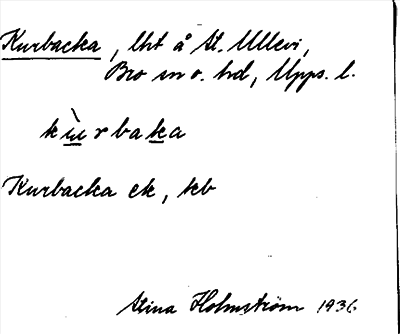 Kurbacka, lht å St. Ullevi,
Bro sn o. hd, Upps. l.
kùrbaka
Kurbacka ek, kb
Stina Holmström 1936